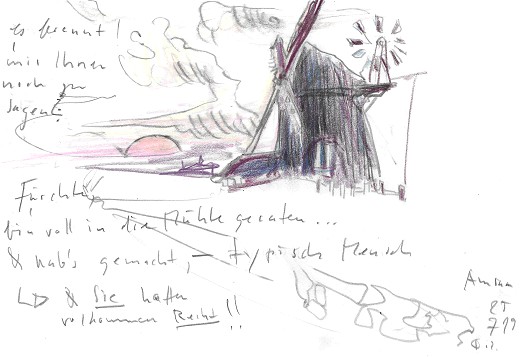 es brennt!
mir Ihnen
noch zu
sagen!
Fürchte,
bin voll in die Mühle geraten...
& hab's gemacht, – typisch Mensch
& Sie hatten
vollkommen Recht!!
Amrum